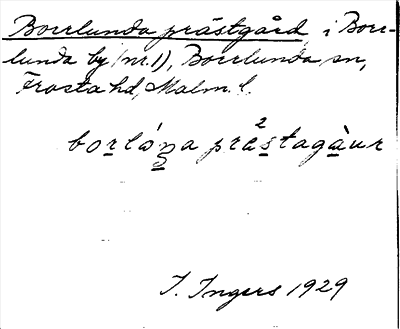 Borrlunda prästgård, i Borr-
lunda by (nr. 1), Borrlunda sn,
Frosta hd, Malm. l.
borlóna prä²stagàur
I. Ingers 1929